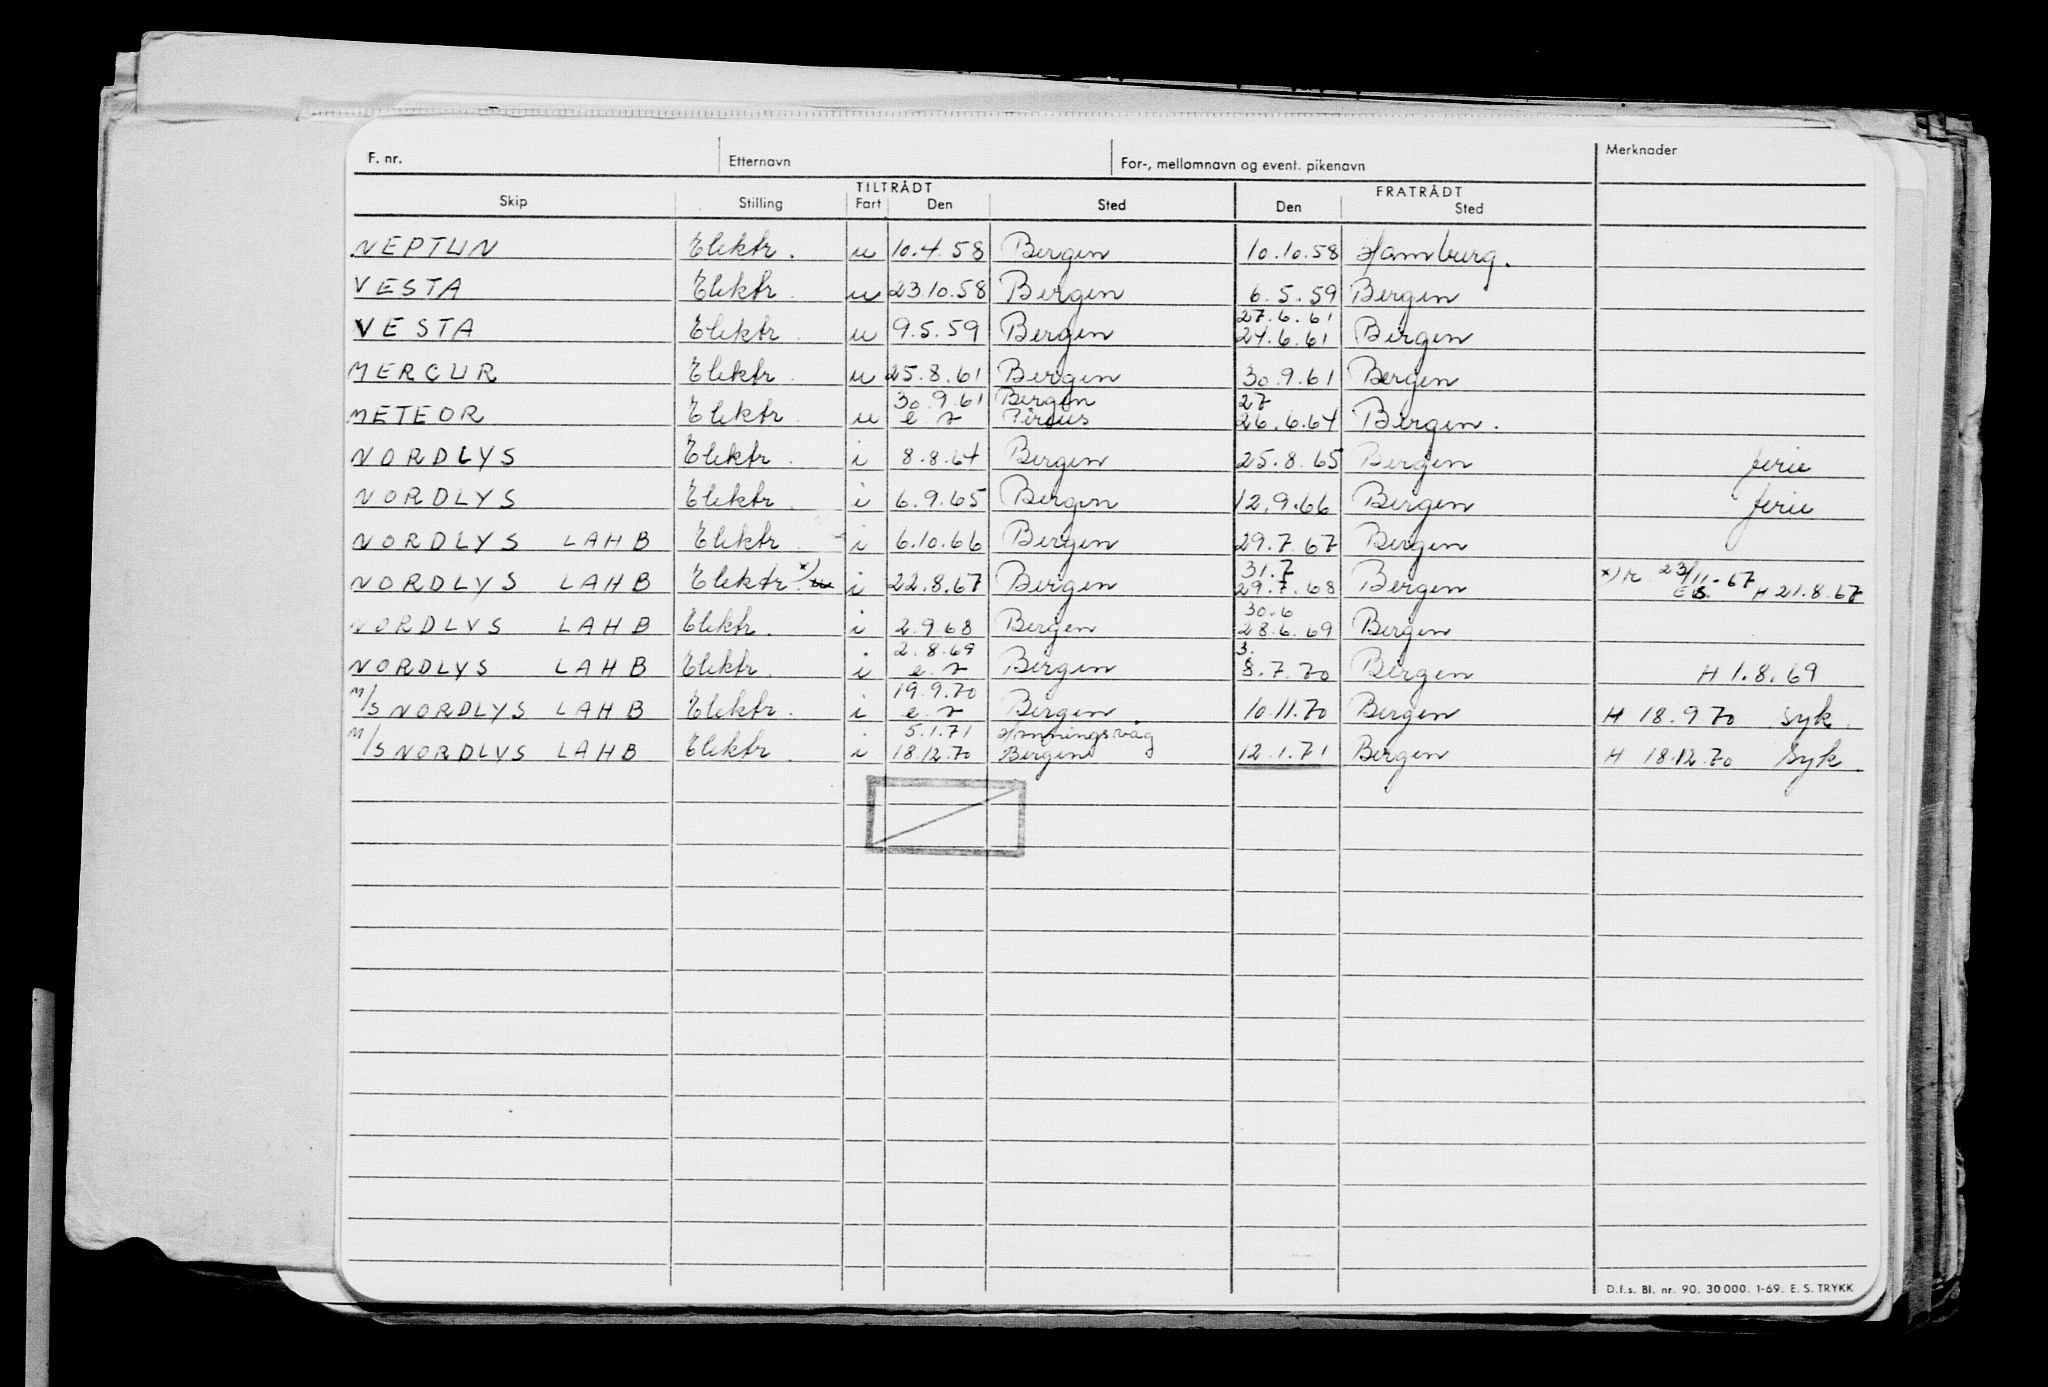 F. nr. Etternavn For-, mellomnavn og event. pikenavn Merknader
TILTRÅDT FRATRÅDT
Skip Stilling Fart Den Sted Den Sted
NEPTUN Elektr. u 10.4.58 Bergen 10.10.58 Hamburg.
VESTA Elektr. u 23.10.58 Bergen 6.5.59 Bergen
27.6.61
VESTA Elektr. u 9.5.59 Bergen 24.6.61 Bergen
MERCUR Elektr. u 25.8.61 Bergen 30.9.61 Bergen
30.9.61 Bergen 27
METEOR Elektr. u e.r Pireus 26.6.64 Bergen.
NORDLYS Elektr. i 8.8.64 Bergen 25.8.65 Bergen ferie
NORDLYS Elektr. i 6.9.65 Bergen 12.9.66 Bergen ferie
NORDLYS LAHB Elektr. i 6.10.66 Bergen 29.7.67 Bergen
31.7
NORDLYS LAHB Elektr. x) i 22.8.67 Bergen 29.7.68 Bergen x) 23/11-67 H 21.8.67
ES
30.6
NORDLYS LAHB Elektr. i 2.9.68 Bergen 28.6.69 Bergen
2.8.69 3.
NORDLYS LAHB Elektr. i e.r Bergen 8.7.70 Bergen H 1.8.69
19.9.70
M/S NORDLYS LAHB Elektr. i e.r Bergen 10.11.70 Bergen H 18.9.70 Syk.
5.1.71 Honningsvåg
M/S NORDLYS LAHB Elektr. i 18.12.70 Bergen 12.1.71 Bergen H 18.12.70 Syk.
D.f.s. Bl. nr. 90. 30000. 1-69. E. S. TRYKK